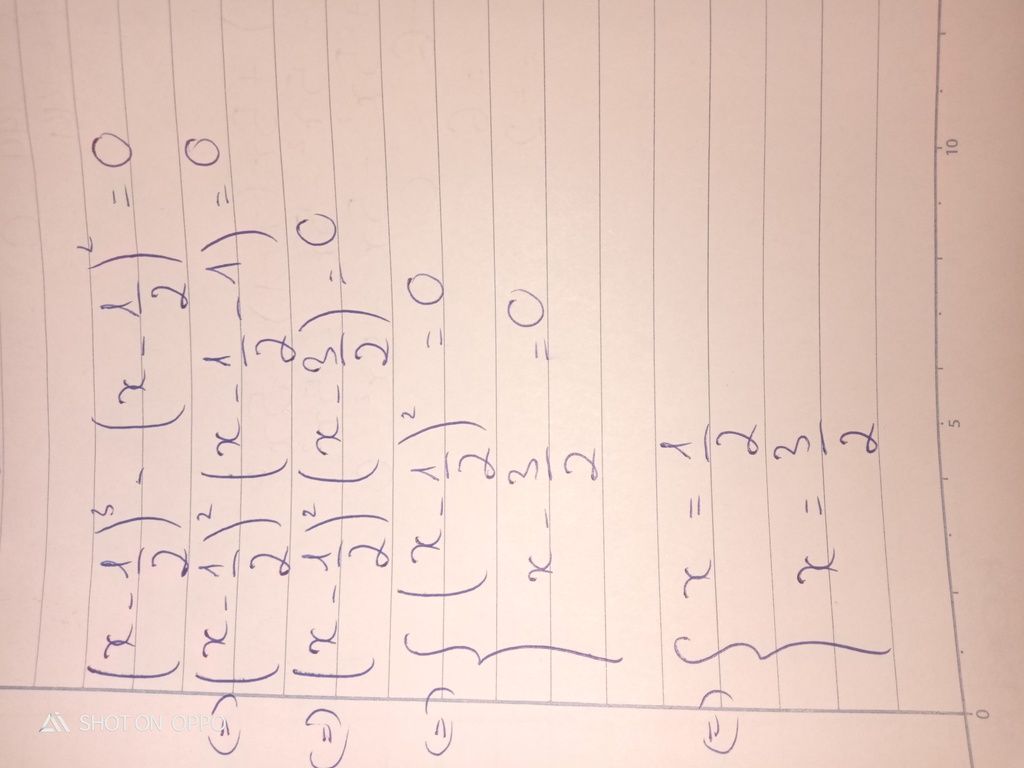 (x - 1/2)³ - (x - 1/2)² = 0
(=) (x - 1/2)² (x - 1/2 - 1) = 0
(=) (x - 1/2)² (x - 3/2) = 0
(=) { (x - 1/2)² = 0
x - 3/2 = 0
(=) { x = 1/2
x = 3/2
0 5 10
SHOT ON OPPO